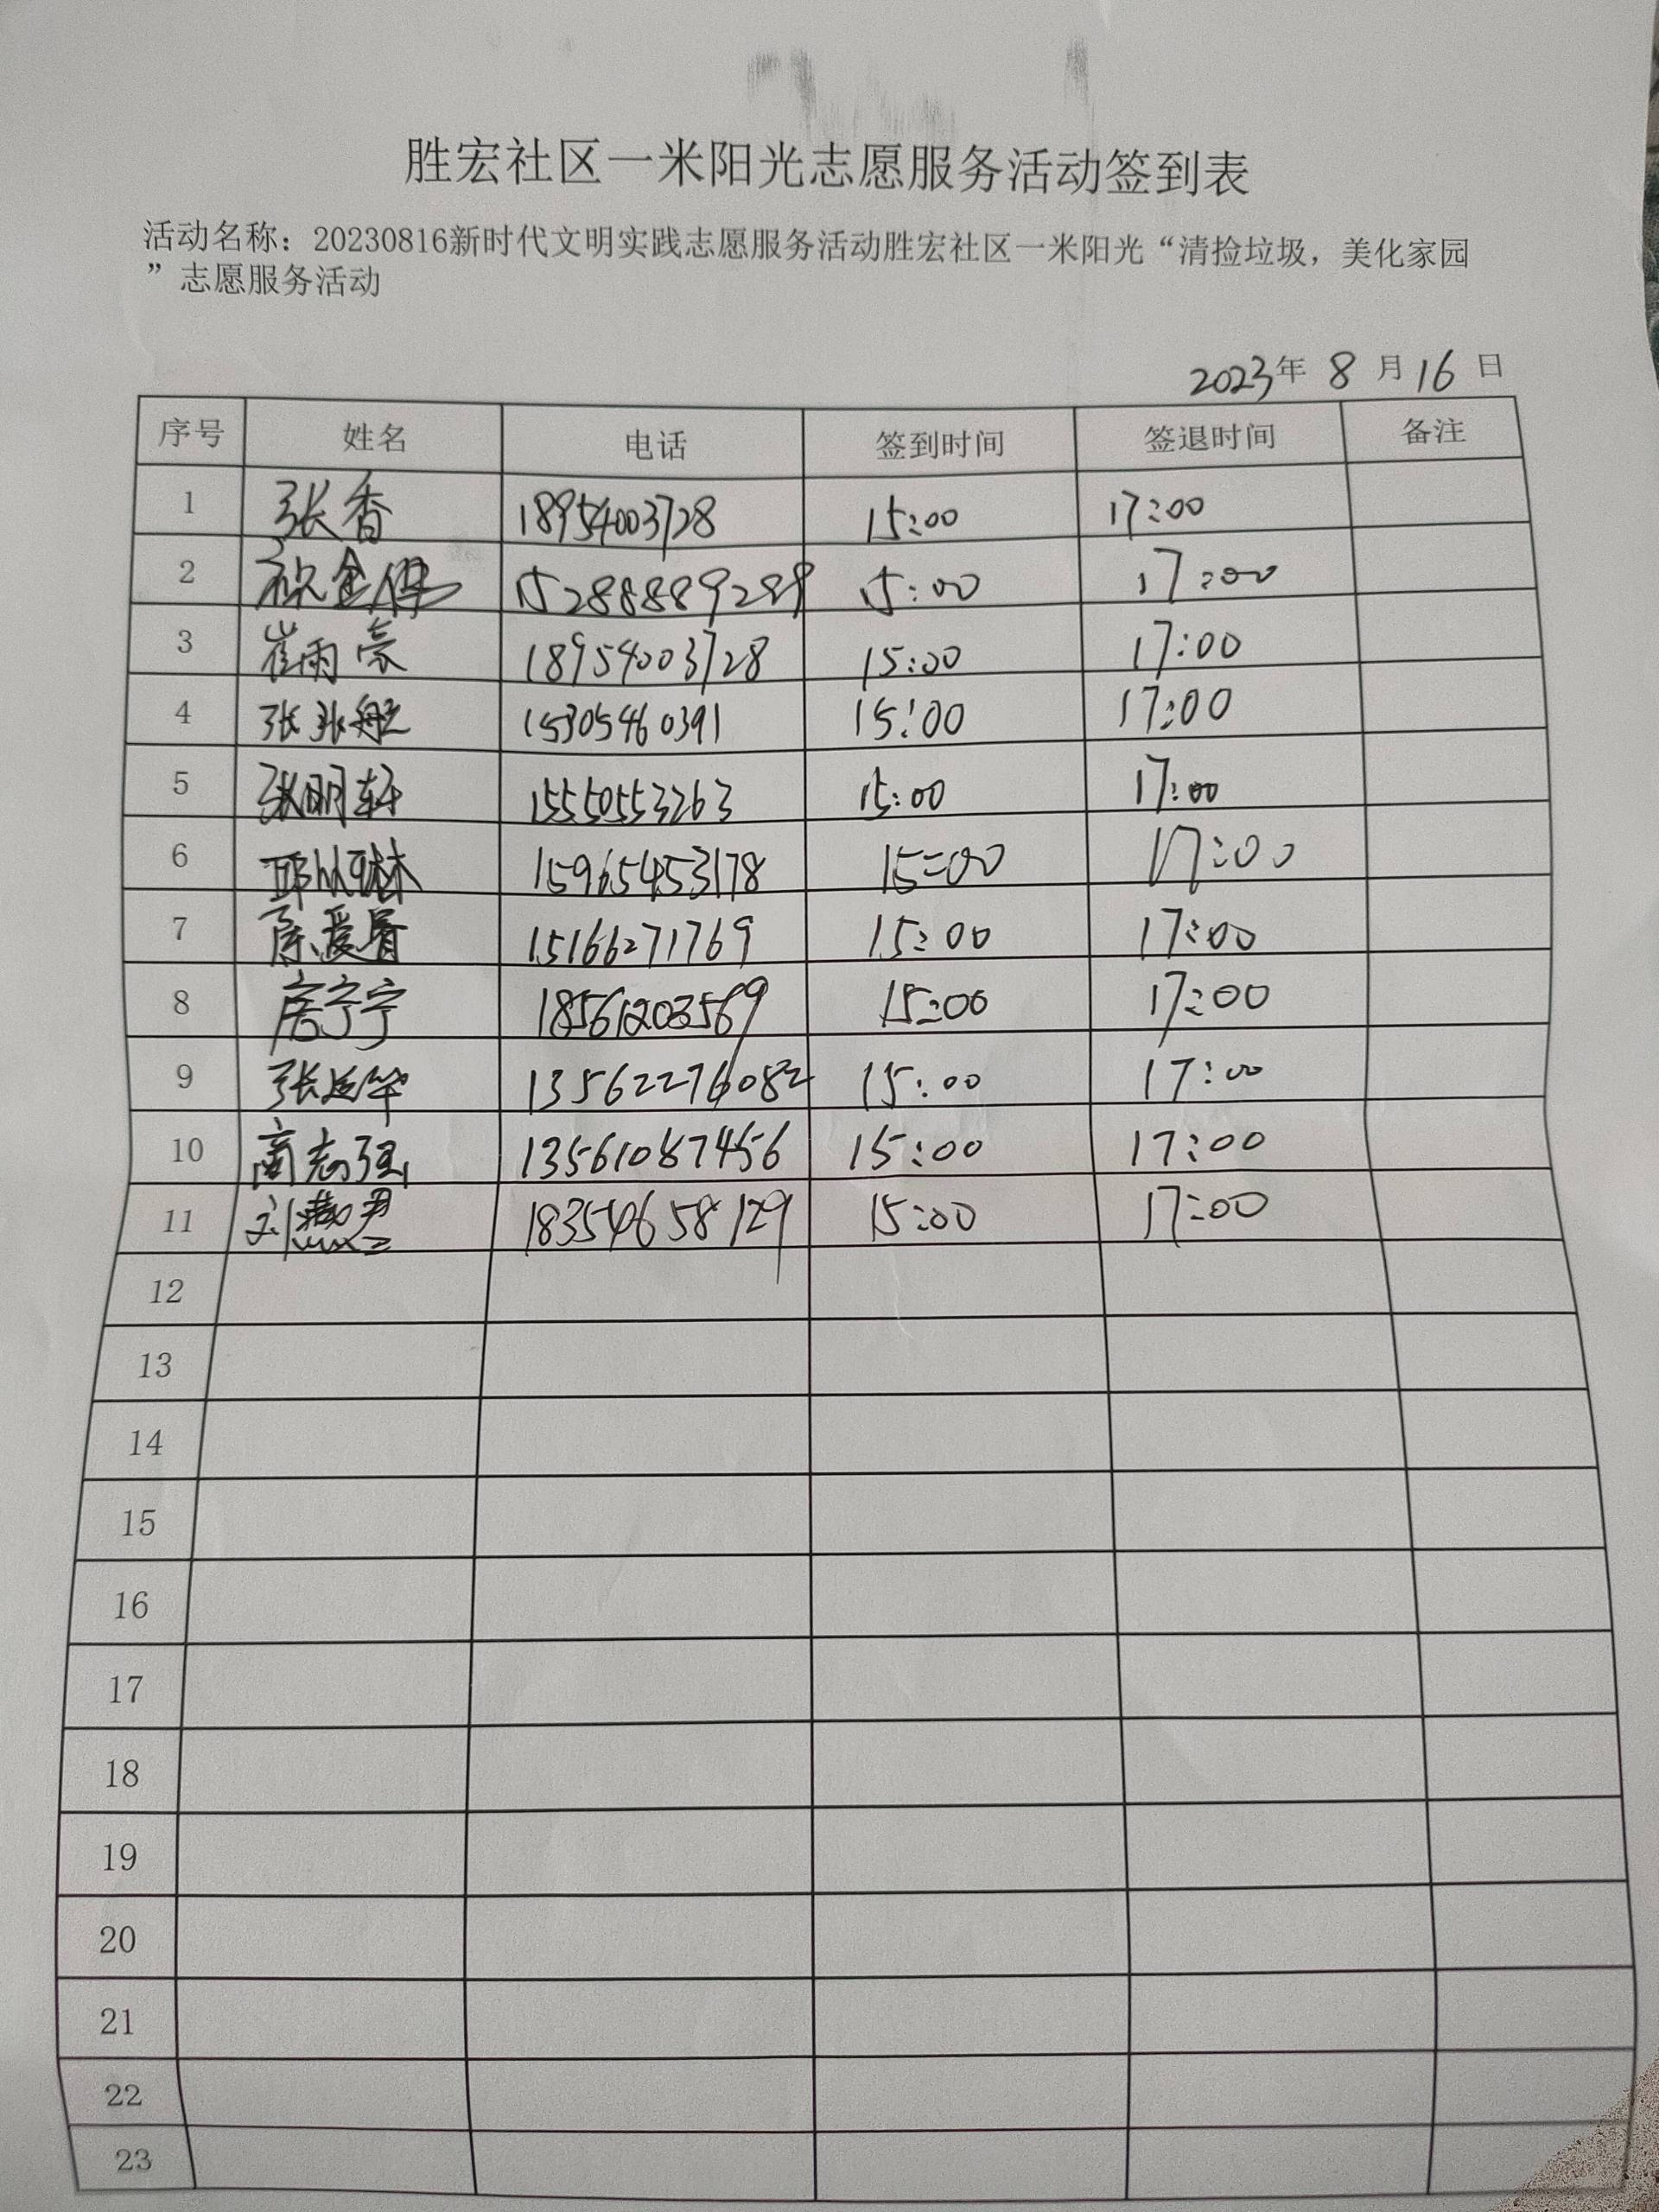 胜宏社区一米阳光志愿服务活动签到表
活动名称：20230816新时代文明实践志愿服务活动胜宏社区一米阳光“清捡垃圾，美化家园
”志愿服务活动
2023年 8 月 16 日
序号 姓名 电话 签到时间 签退时间 备注
1 张香 18954003728 15:00 17:00
2 15288889289 15:00 17:00
3 崔雨亮 18954003728 15:00 17:00
4 张张舰 15305460391 15:00 17:00
5 张明轩 15550553263 15:00 17:00
6 15965453178 15:00 17:00
7 陈爱香 15166271769 15:00 17:00
8 房宁宁 18561203569 15:00 17:00
9 张延华 13562276082 15:00 17:00
10 商志强 13561087456 15:00 17:00
11 18354658129 15:00 17:00
12
13
14
15
16
17
18
19
20
21
22
23